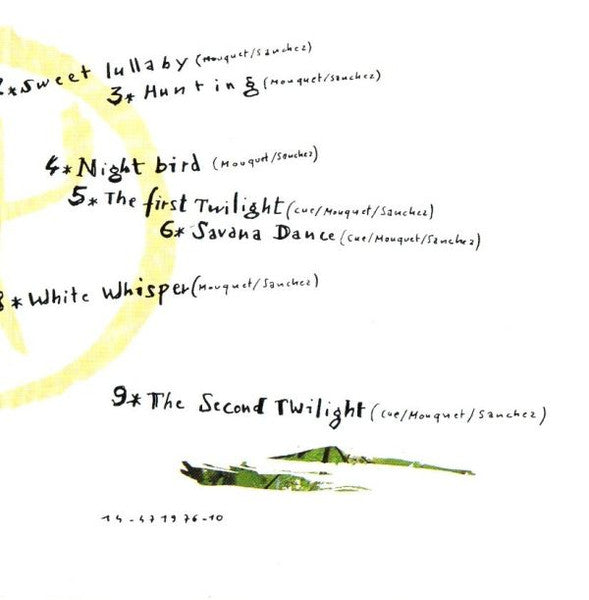 *Sweet lullaby (Mouquet/Sanchez)
3* Hunting (Mouquet/Sanchez)
4* Night bird (Mouquet/Sanchez)
5* The first Twilight (Cue/Mouquet/Sanchez)
6* Savana Dance (Cue/Mouquet/Sanchez)
8* White Whisper (Mouquet/Sanchez)
9* The Second Twilight (Cue/Mouquet/Sanchez)
14-471976-10